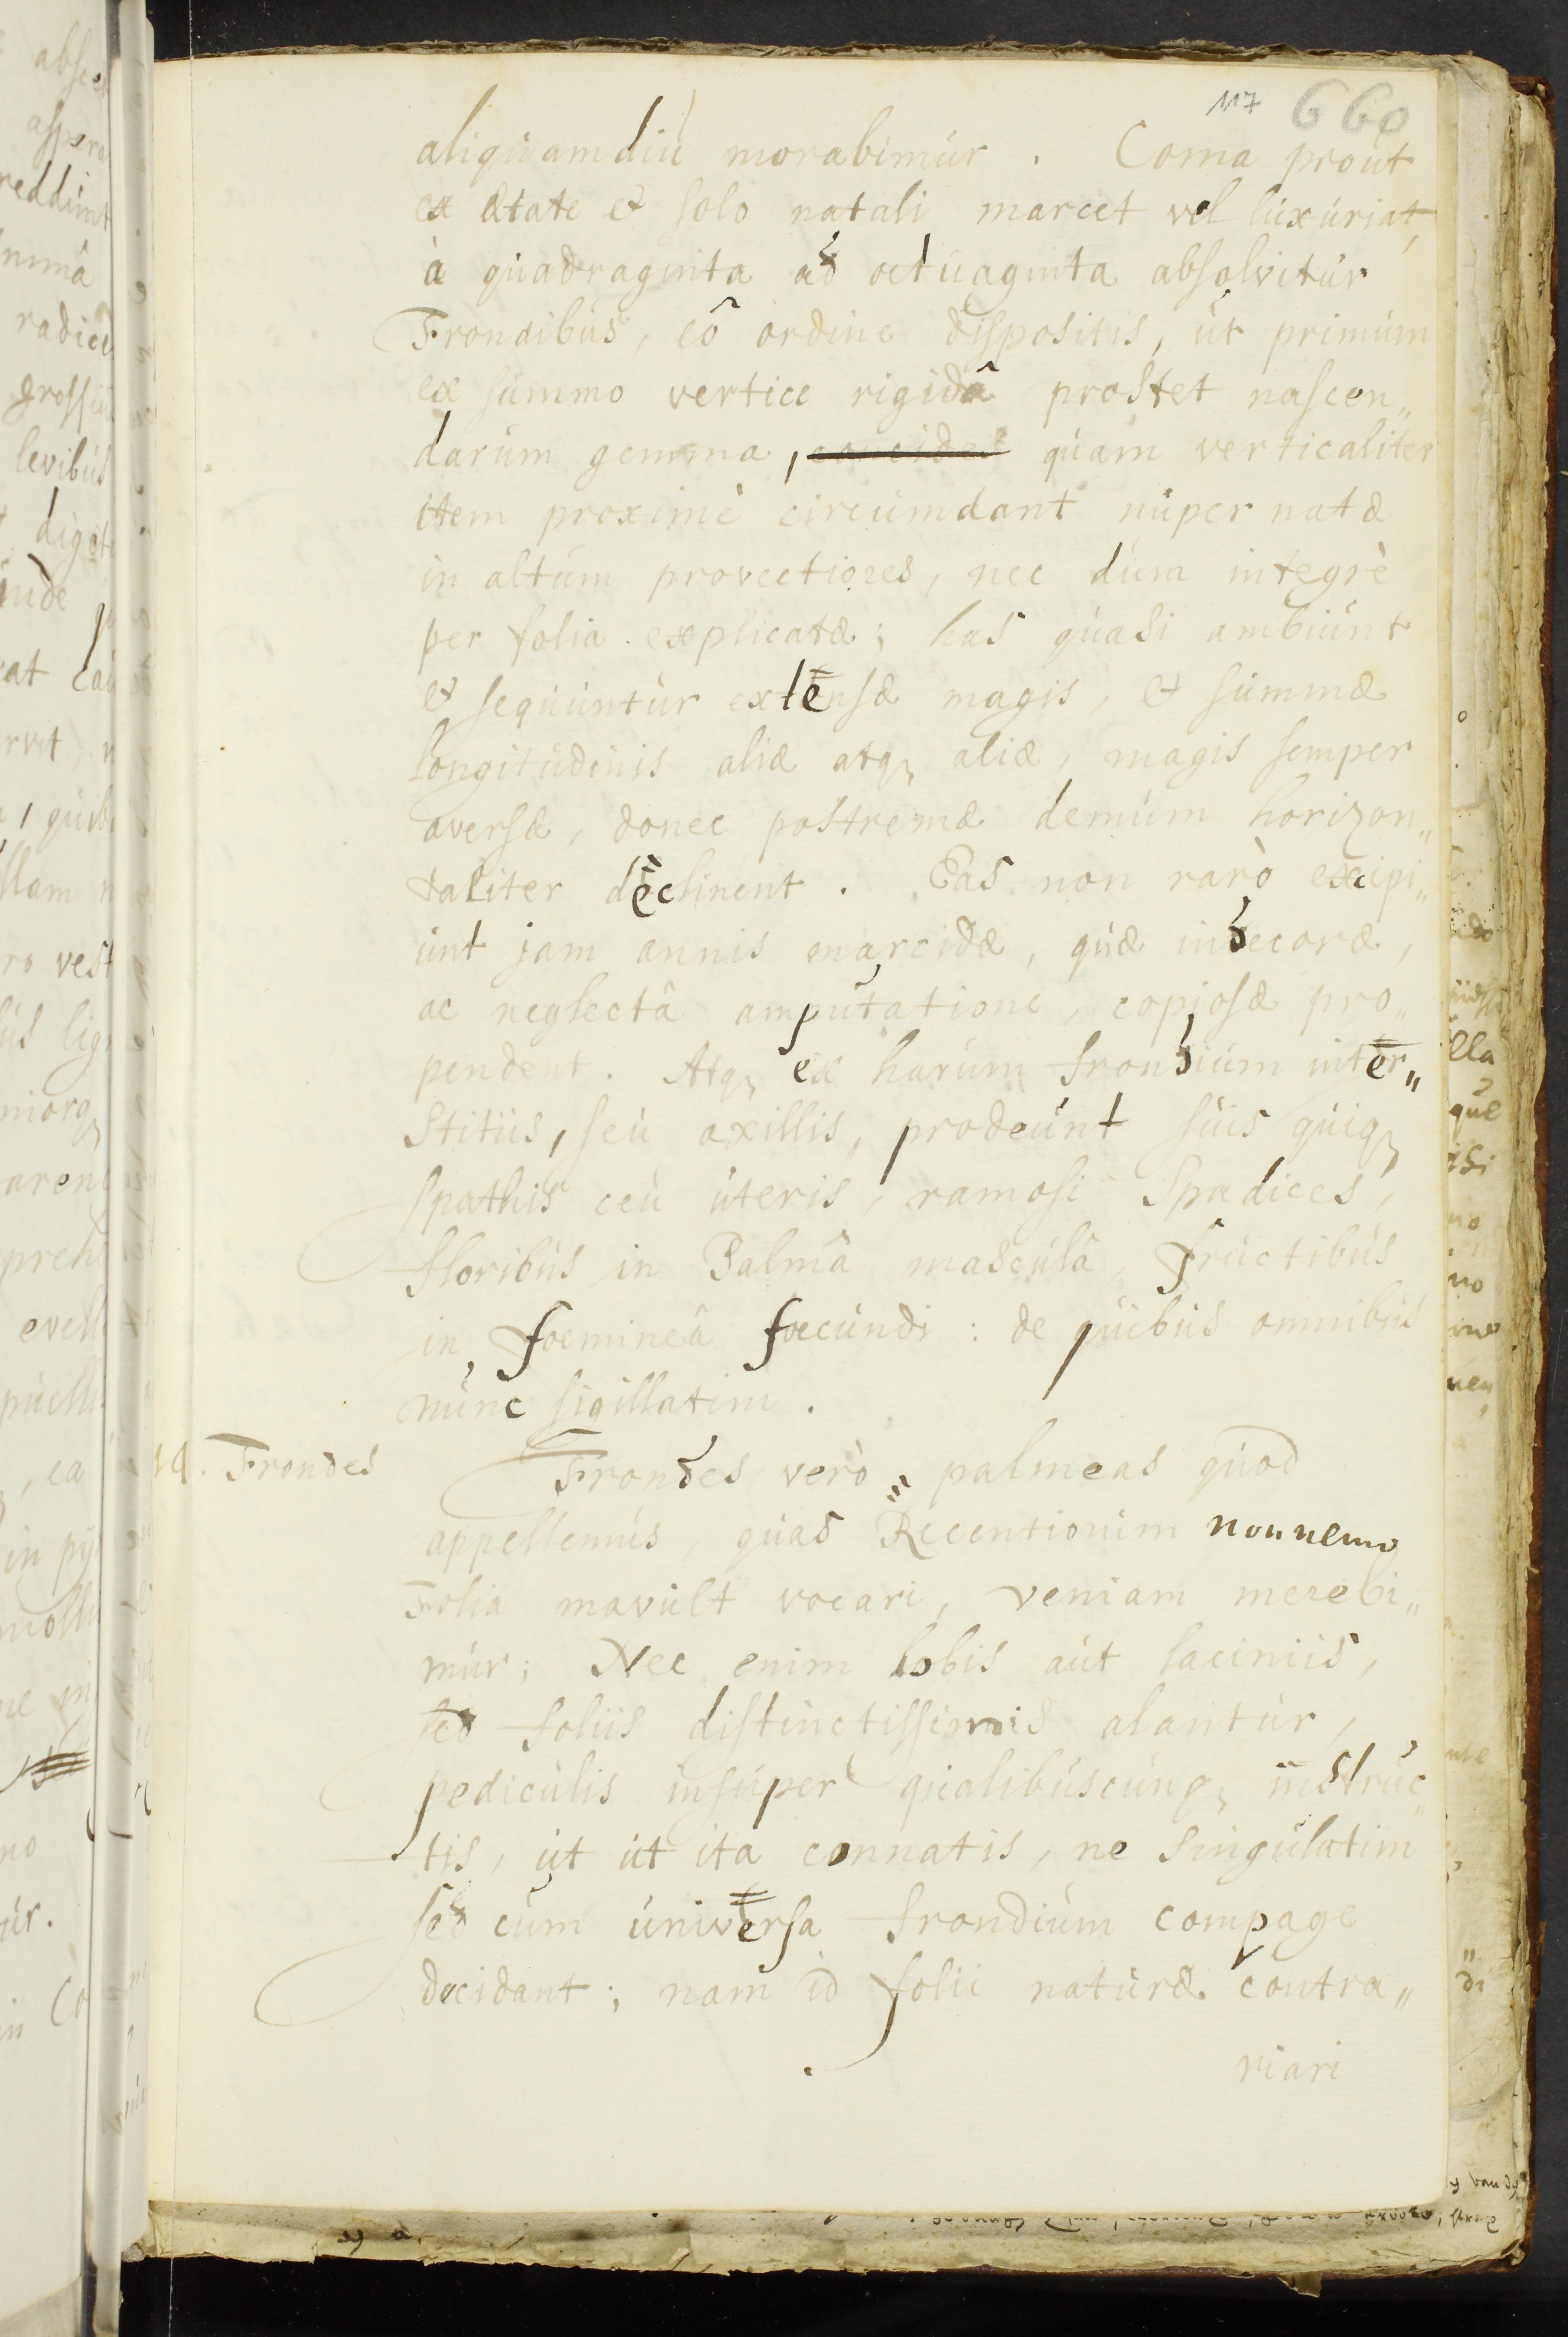 117 660
aliquamdiu morabimur . Coma prout
ex ætate & solo natali marcet vel luxuriat,
à quadraginta ad octuaginta absolvitur
Frondibus, eô ordine dispositis, ut primum
ex summo vertice rigidâ prostet nascen„
darum gemma, quam verticaliter
item proximè circumdant nuper natæ
in altum provectiores, nec dum integrè
per folia explicatæ; has quasi ambiunt
& sequuntur extensæ magis, & summæ
longitudinis aliæ atq, aliæ, magis semper
aversæ, donec postremæ demum horizon„
taliter declinent . Eas non rarò excipi„
unt jam annis marcidæ, quæ indecoræ,
ac neglectâ amputatione, copiosæ pro„
pendent. Atq, ex harum frondium inter„
stitiis, seu axillis, prodeunt suis quiq,
spathis ceu uteris, ramosi Spadices,
floribus in Palmâ masculâ, fructibus
in foemineâ foecundi : de quibus omnibus
nunc sigillatim .
14. Frondes
Frondes verò palmeas quod
appellemus quas Recentiorum nonnemo
Folia mavult vocari, veniam merebi„
mur; Nec enim lobis aut laciniis,
sed foliis distinctissimis alantur,
pediculis insuper qualibuscunq, instruc„
tis, ut ut ita connatis, ne singulatim
sed cum universa frondium compage
decidant; nam id folii naturæ contra„
riari